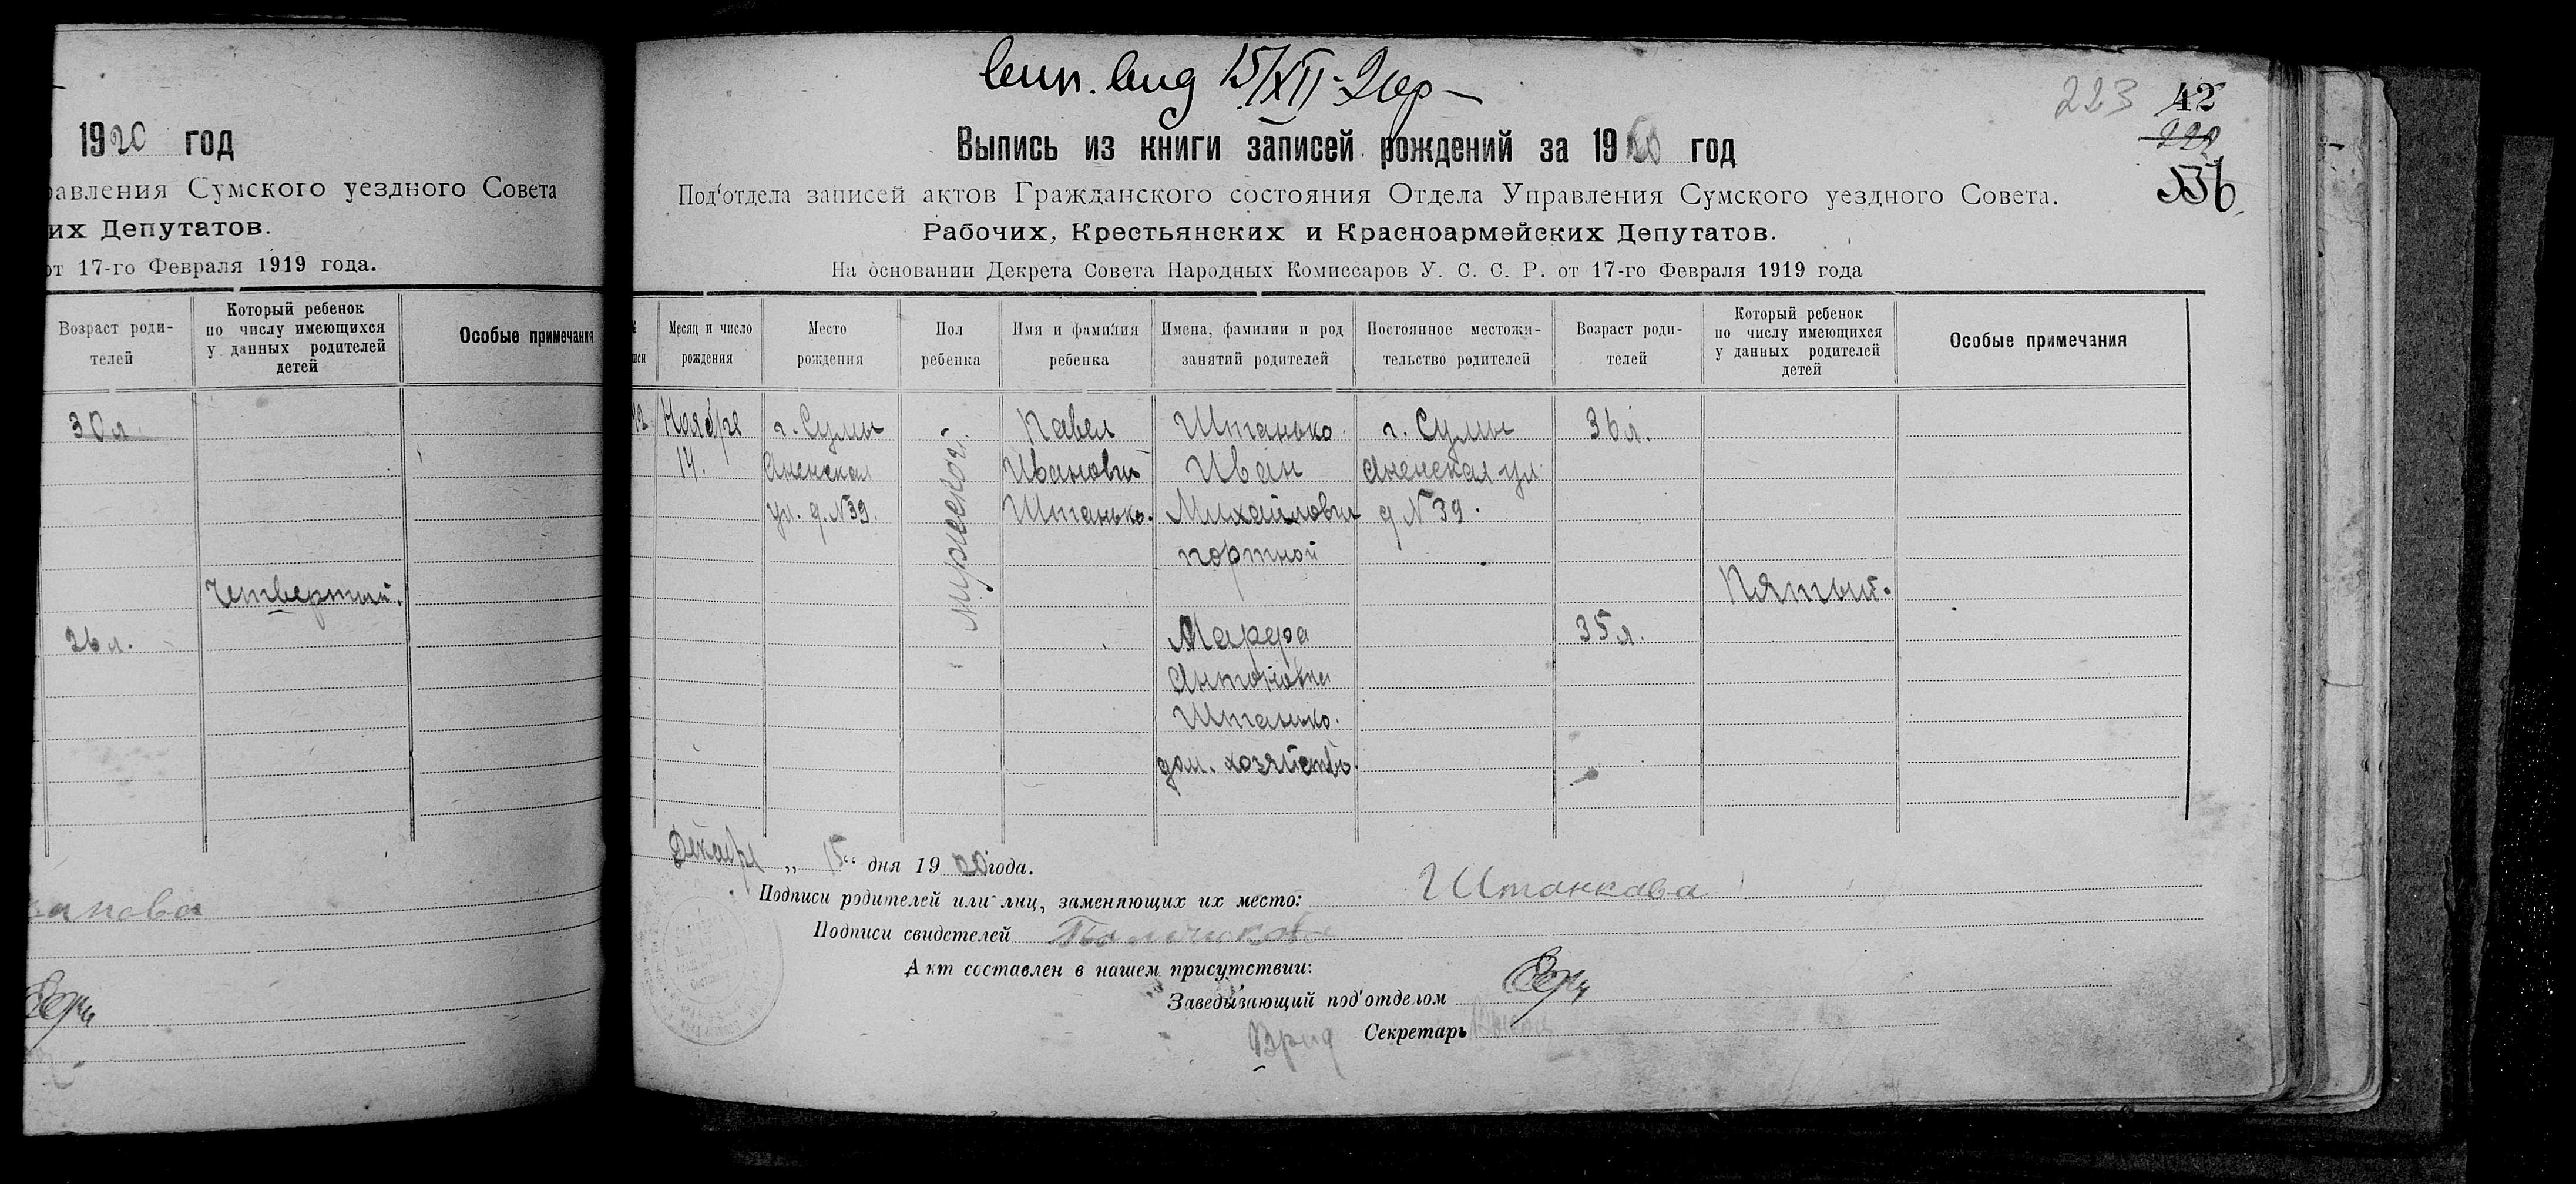 1920 год
равления Сумского уездного Совета
их Депутатов.
от 17-го Февраля 1919 года.
Возраст родителей
Который ребенок по числу имеющихся у данных родителей детей
Особые примечания
30 л.
Четвертый.
26 л.
15/XII
223 42
Выпись из книги записей рождений за 1920 год
Под'отдела записей актов Гражданского состояния Отдела Управления Сумского уездного Совета.
Рабочих, Крестьянских и Красноармейских Депутатов.
На основании Декрета Совета Народных Комиссаров У. С. С. Р. от 17-го Февраля 1919 года
Месяц и число рождения
Место рождения
Пол ребенка
Имя и фамилия ребенка
Имена, фамилии и род занятий родителей
Постоянное местожительство родителей
Возраст родителей
Который ребенок по числу имеющихся у данных родителей детей
Особые примечания
Ноября
14.
г. Сумы
Аненская
ул. д. N 39.
Мужеской.
Павел
Иванович
Штанько.
Штанько
Иван
Михайлович
портной
Марфа
Антоновна
Штанько.
дом. хозяйство.
г. Сумы
Аненская ул.
д N 39.
36 л.
35 л.
Пятый.
Декабря „15“ дня 1920 года.
Подписи родителей или лиц, заменяющих их место: Штанкава
Подписи свидетелей
Акт составлен в нашем присутствии:
Заведывающий под'отделом
Врид Секретарь